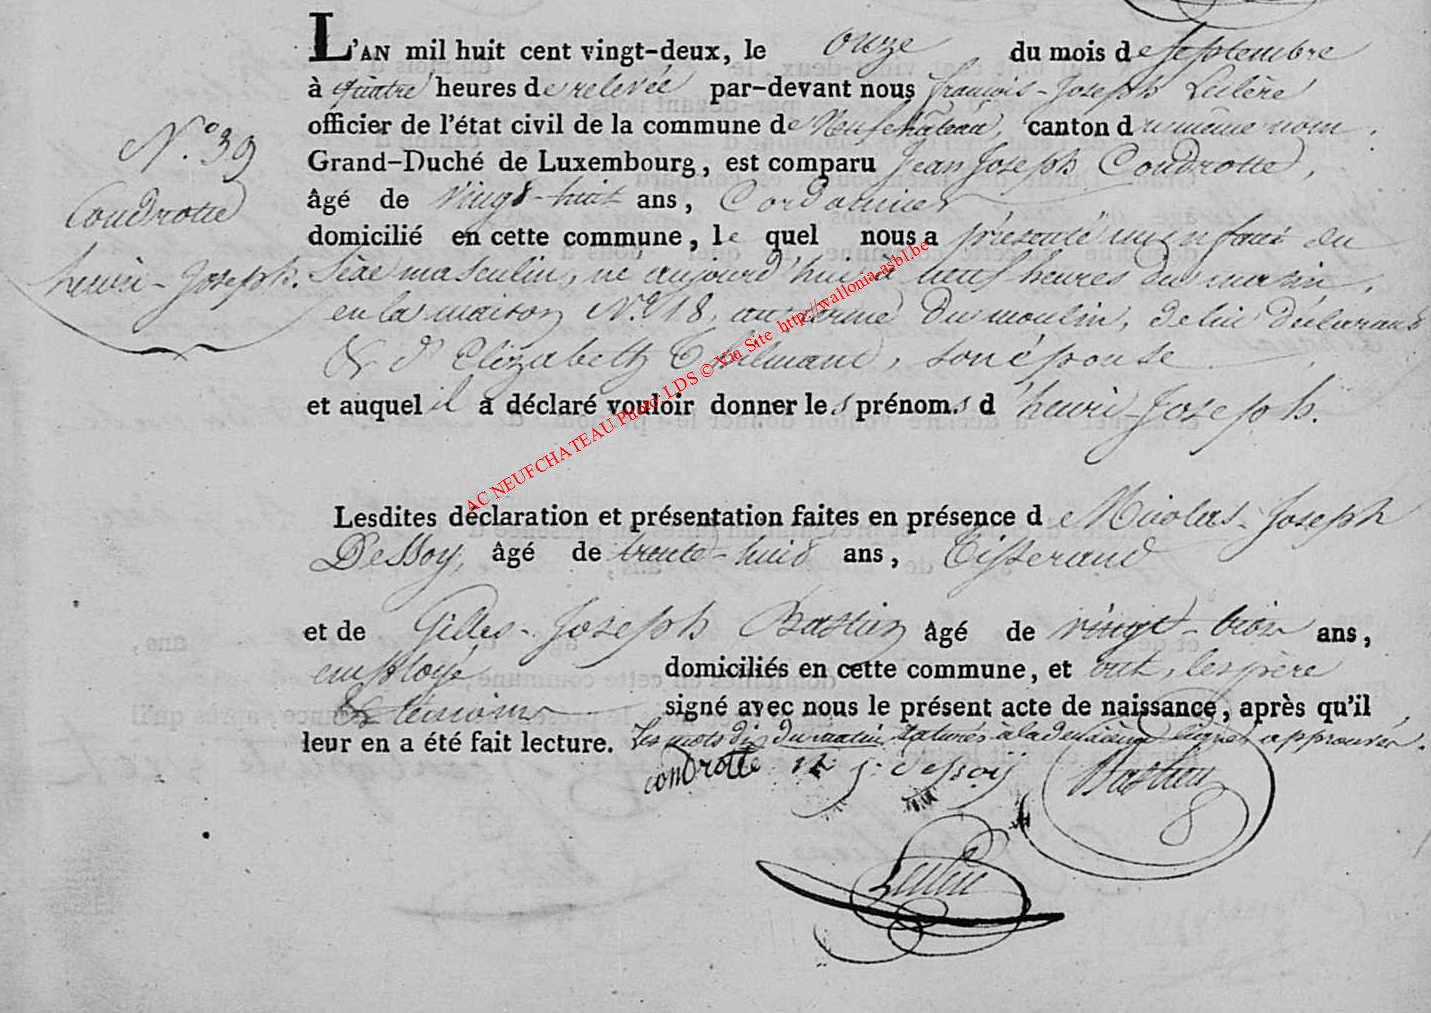 L'AN mil huit cent vingt-deux, le onze du mois de septembre
à quatre heures de relevée par-devant nous françois-Joseph
officier de l'état civil de la commune de Neufchâteau, canton du même nom,
N.° 39
Grand-Duché de Luxembourg, est comparu Jean Joseph Condrotte,
âgé de vingt-huit ans, Cordonnier
Condrotte
henri-Joseph.
domicilié en cette commune, le quel nous a présenté un enfant du
Sèxe masculin, né aujourd'hui à neuf heures du matin,
en la maison N.° 18, du moulin, de lui déclarant
& d'Elizabeth Thilmant, son épouse
et auquel il a déclaré vouloir donner les prénoms d'henri-Joseph.
AC NEUFCHATEAU Photo LDS © Via Site http://wallonia-asbl.be
Lesdites déclaration et présentation faites en présence de Nicolas-Joseph
Dessoy, âgé de trente-huit ans, Tisserand
et de Gilles-Joseph Bastin âgé de vingt-trois ans,
employé domiciliés en cette commune, et ont, les père
& témoins signé avec nous le présent acte de naissance, après qu'il
leur en a été fait lecture. Les mots dix du matin raturés à la deuxième ligne approuvés.
condrotte n j. dessoy Bastin